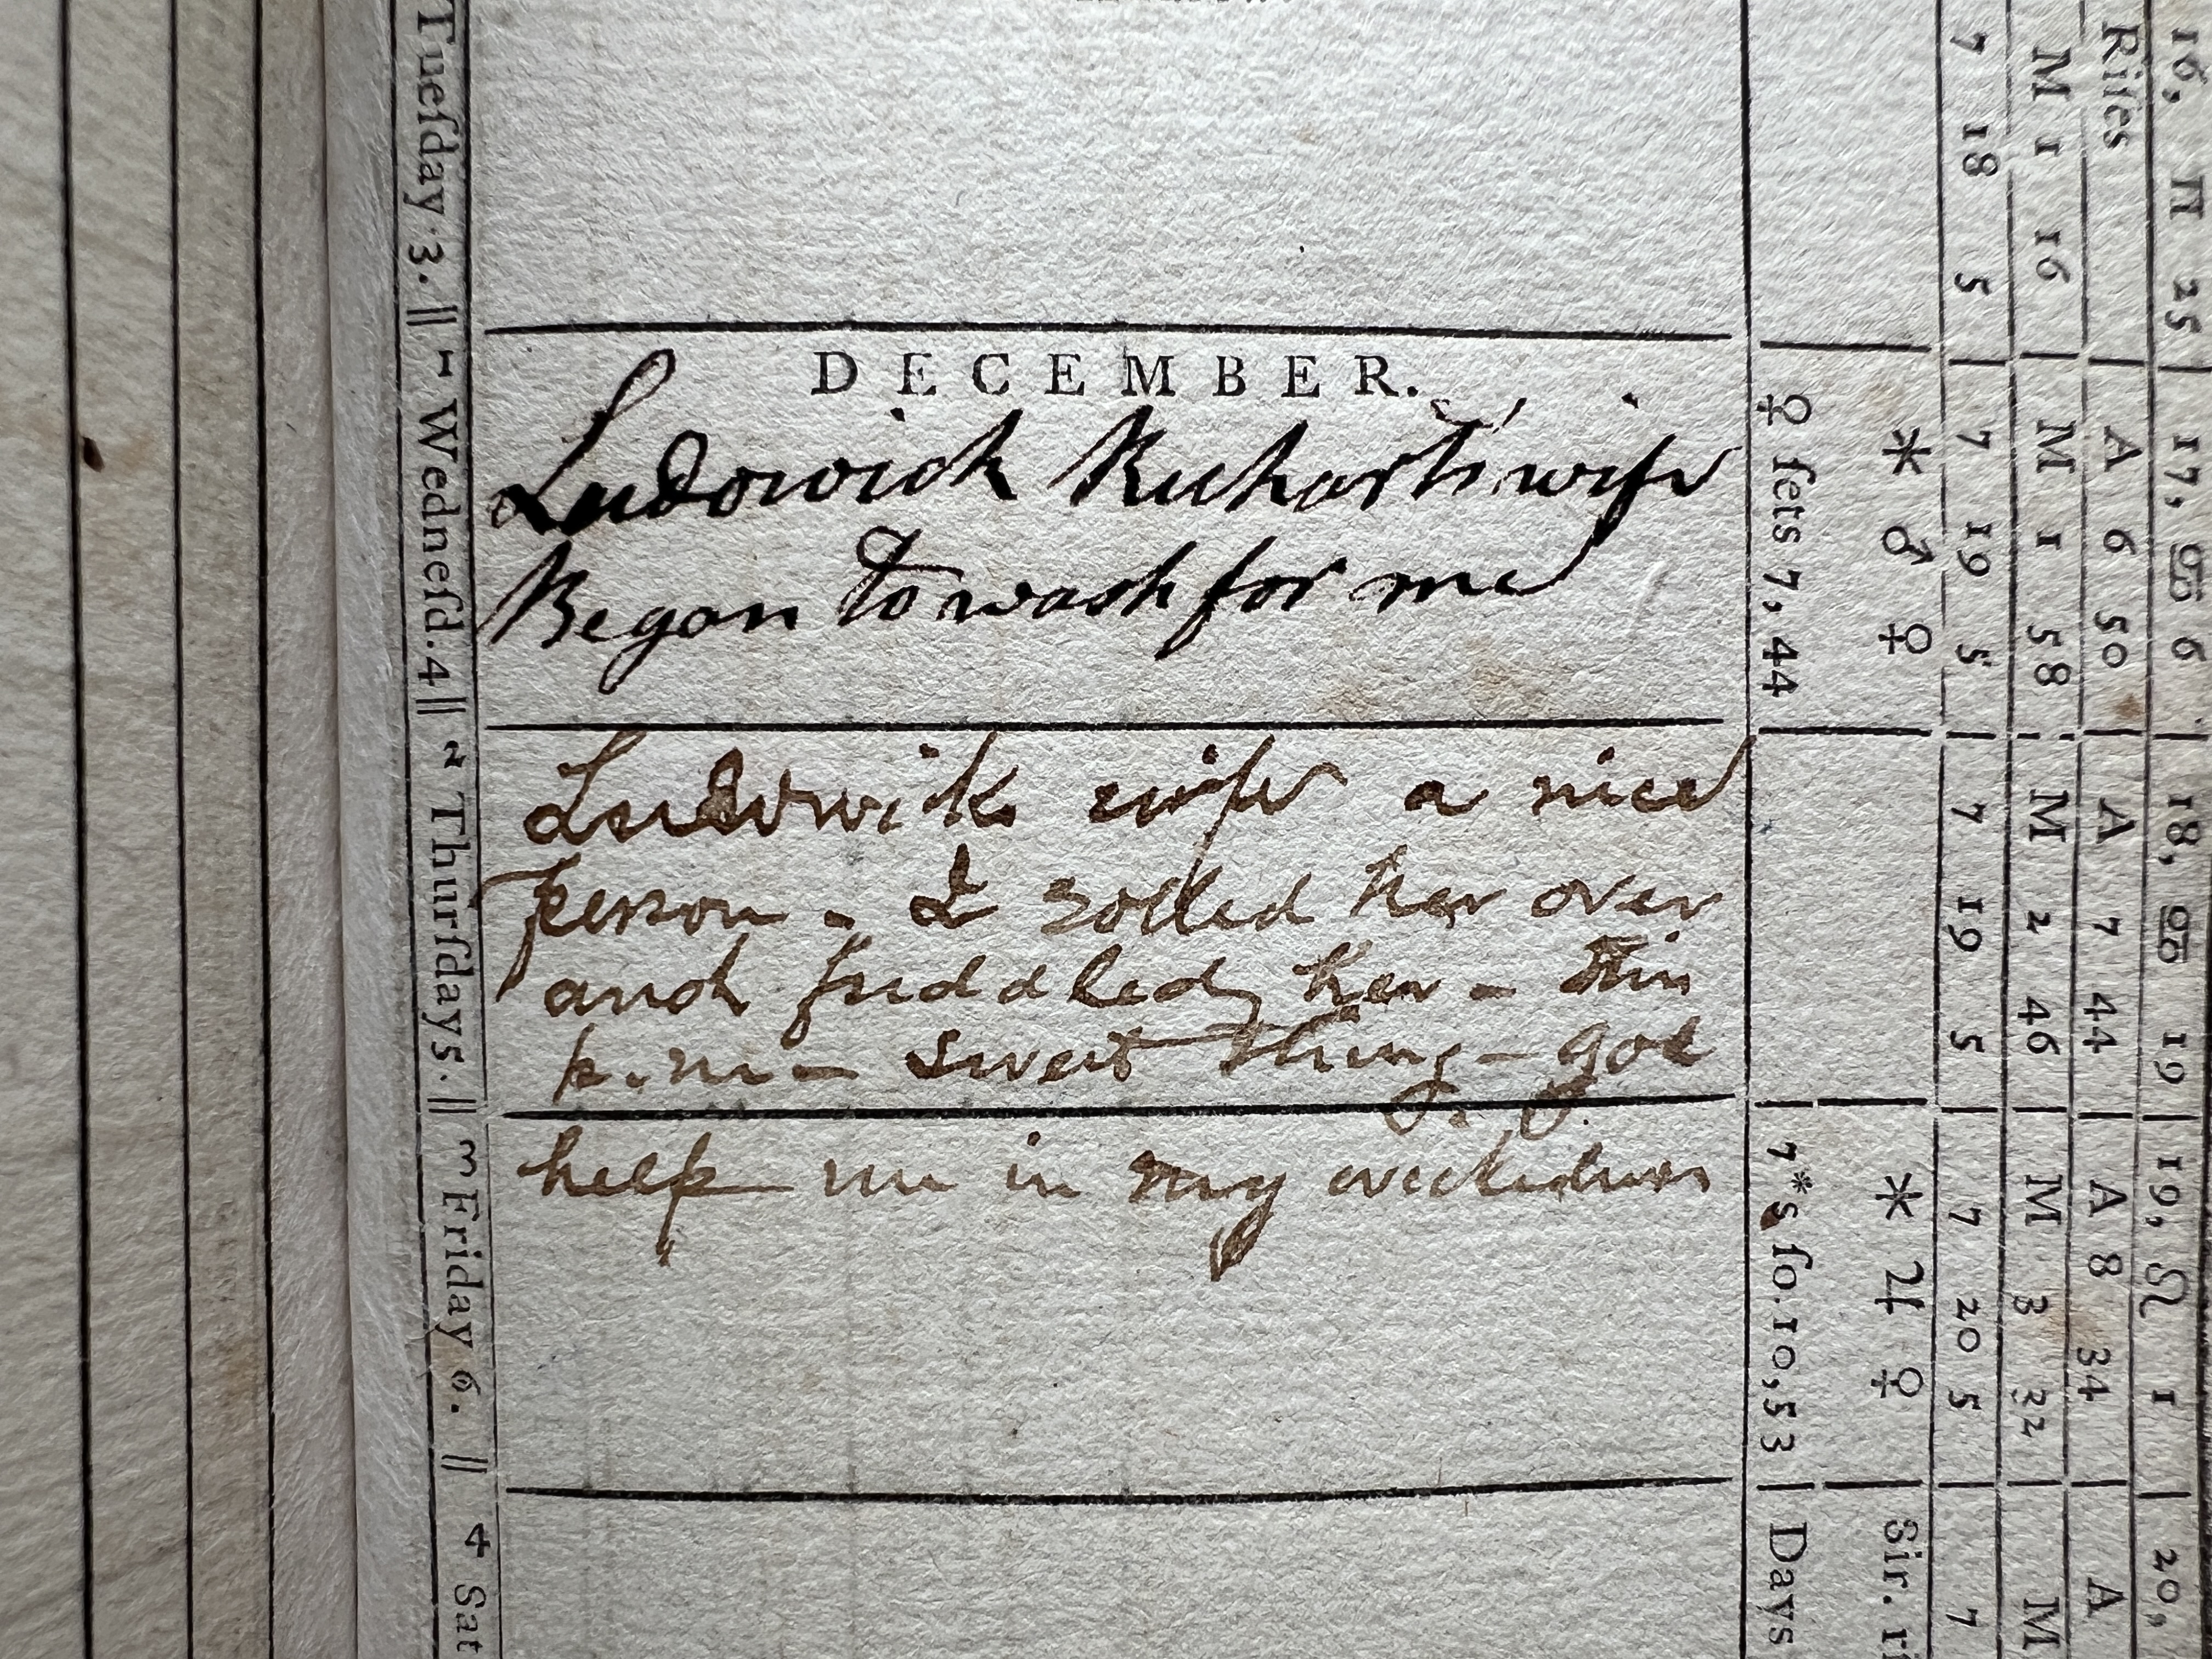 DECEMBER.
Ludowick Kuharts' wife
Began to wash for me
Ludowicks wife a nice
person - I rolled her over
and fuddled her - this
p.m - sweet thing - god
help me in my wickedness
Tuesday 3. ||
1 Wednesd. 4 ||
2 Thursday 5. ||
3 Friday 6. ||
4 Sat
♀ sets 7, 44
7*s so. 10, 53
Days
* ♂ ♀
* ♃ ♀
Sir. ri
7 18 5
7 19 5
7 19 5
7 20 5
7
M 1 16
M 1 58
M 2 46
M 3 32
M
Rises
A 6 50
A 7 44
A 8 34
A
16, Π 25
17, ♋ 6
18, ♋ 19
19, ♌ 1
20,